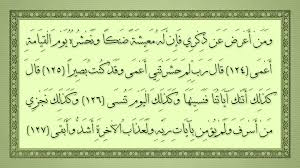 وَمَنْ أَعْرَضَ عَن ذِكْرِي فَإِنَّ لَهُ مَعِيشَةً ضَنكًا وَنَحْشُرُهُ يَوْمَ الْقِيَامَةِ
أَعْمَى (١٢٤) قَالَ رَبِّ لِمَ حَشَرْتَنِي أَعْمَى وَقَدْ كُنتُ بَصِيرًا (١٢٥) قَالَ
كَذَلِكَ أَتَتْكَ آيَاتُنَا فَنَسِيتَهَا وَكَذَلِكَ الْيَوْمَ تُنسَى (١٢٦) وَكَذَلِكَ نَجْزِي
مَنْ أَسْرَفَ وَلَمْ يُؤْمِن بِآيَاتِ رَبِّهِ وَلَعَذَابُ الْآخِرَةِ أَشَدُّ وَأَبْقَى (١٢٧)